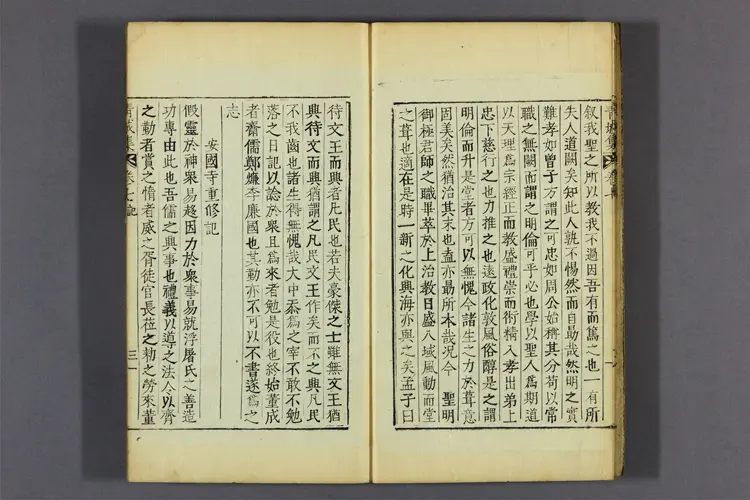 叙我聖之所以教我不過因吾有而篤之也一有所
失人道闕矣知此人孰不惕然而自勖哉然明之實
難孝如曾子方謂之可忠如周公始稱其分苟以常
職之無闕而謂之明倫可乎必也學以聖人爲期道
以天理爲宗經正而教盛禮崇而術精入孝出弟上
忠下慈行之也力推之也遠政化敦風俗醇是之謂
明倫而升是堂者方可以無愧今諸生之力於葺意
固美矣然猶治其末也盍亦勗所本哉况今 聖明
御極君師之職畢萃於上治教日盛八域風動而堂
之葺也適在是時一新之化興海亦與之矣孟子曰
青城集 卷七
待文王而興者凡民也若夫豪傑之士雖無文王猶
興待文而興猶謂之凡民文王作矣而不之興凡民
不我齒也諸生得無愧哉大中忝爲之宰不敢不勉
落之日記以諗於衆且爲來者勉是役也終始董成
者齋儒鄭㷿李廉國也其勤亦不可以不書遂爲之
志
安國寺重修記
假靈於神衆易趍因力於衆事易就浮屠氏之善造
功專由此也吾儒之興事也禮義以導之法令以齊
之勤者賞之惰者威之胥徒官長莅之勑之勞來董
青城集 卷七 記 三一